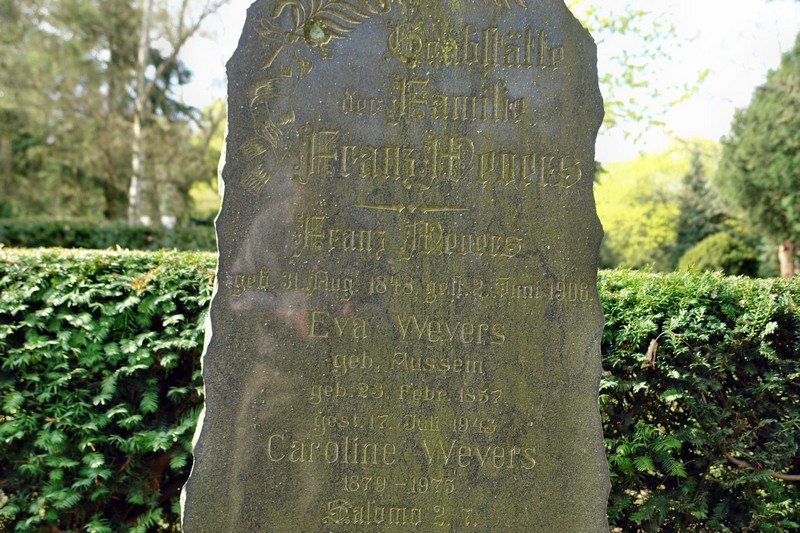 Grabstätte
der Familie
Franz Weyers
Franz Weyers
geb. 31. Aug. 1848, gest. 2. Juni 1906.
Eva Weyers
geb. Aussem
geb. 23. Febr. 1857.
gest. 17. Juli 1943.
Caroline Weyers
1879 - 1973
Salomo 2. 7.